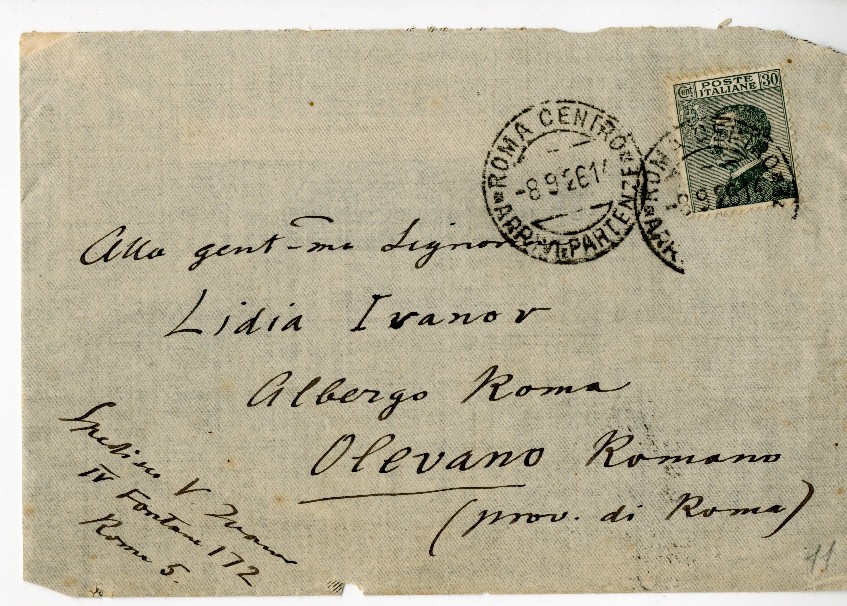 Cent POSTE ITALIANE 30
ROMA CENTRO
-8 9 26 14
ARRIVI E PARTENZE
ROMA
ARR
Alla gent-ma Signora
Lidia Ivanov
Albergo Roma
Olevano Romano
(prov. di Roma)
V. Ivanov
IV Fontane 172
Roma 5.
11